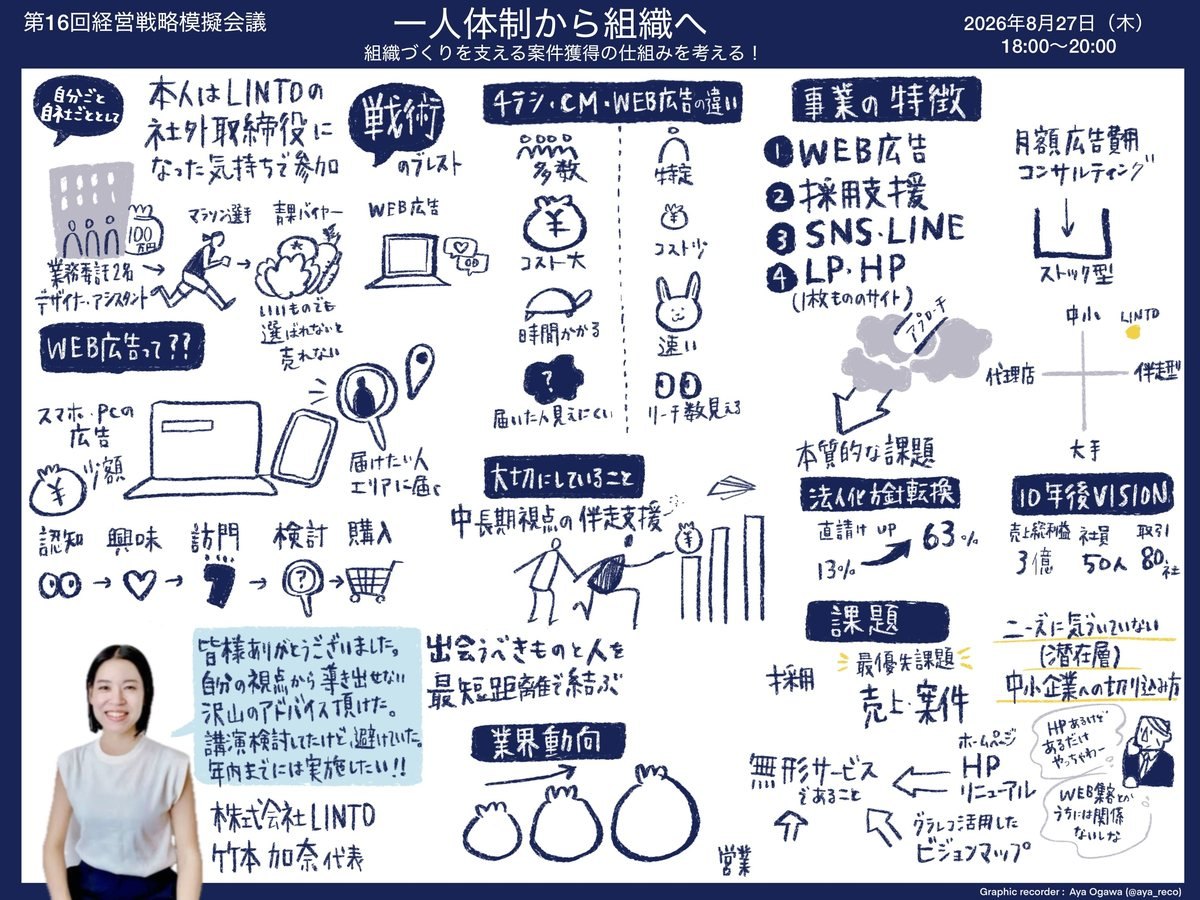 第16回経営戦略模擬会議
一人体制から組織へ
組織づくりを支える案件獲得の仕組みを考える！
2026年8月27日（木）
18:00〜20:00
自分ごと
自社ごととして
本人はLINTOの
社外取締役に
なった気持ちで参加
戦術
のブレスト
100
万円
業務委託2名
デザイナー、アシスタント
マラソン選手
青果バイヤー
いいものでも
選ばれないと
売れない
WEB広告
WEB広告って??
スマホ・PCの
広告
¥
少額
届けたい人
エリアに届く
認知
興味
訪問
検討
購入
?
皆様ありがとうございました。
自分の視点から導き出せない
沢山のアドバイス頂けた。
講演検討してたけど、避けていた。
年内までには実施したい!!
株式会社LINTO
竹本 加奈代表
チラシ・CM・WEB広告の違い
多数
特定
¥
コスト大
¥
コスト少
時間かかる
速い
?
届いた人見えにくい
リーチ数見える
大切にしていること
中長期視点の伴走支援
¥
出会うべきものと人を
最短距離で結ぶ
業界動向
事業の特徴
1 WEB広告
2 採用支援
3 SNS・LINE
4 LP・HP
(1枚もののサイト)
アプローチ
本質的な課題
月額広告費用
コンサルティング
ストック型
中小
LINTO
代理店
伴走型
大手
法人化方針転換
直請け UP
13%
63%
10年後VISION
売上総利益
3億
社員
50人
取引
80社
課題
採用
最優先課題
売上・案件
無形サービス
であること
営業
ホームページ
HP
リニューアル
グラレコ活用した
ビジョンマップ
ニーズに気づいていない
(潜在層)
中小企業への切り込み方
HPあるけど
あるだけ
やっちゃわー
WEB集客とか
うちには関係
ないしな
Graphic recorder : Aya Ogawa (@aya_reco)